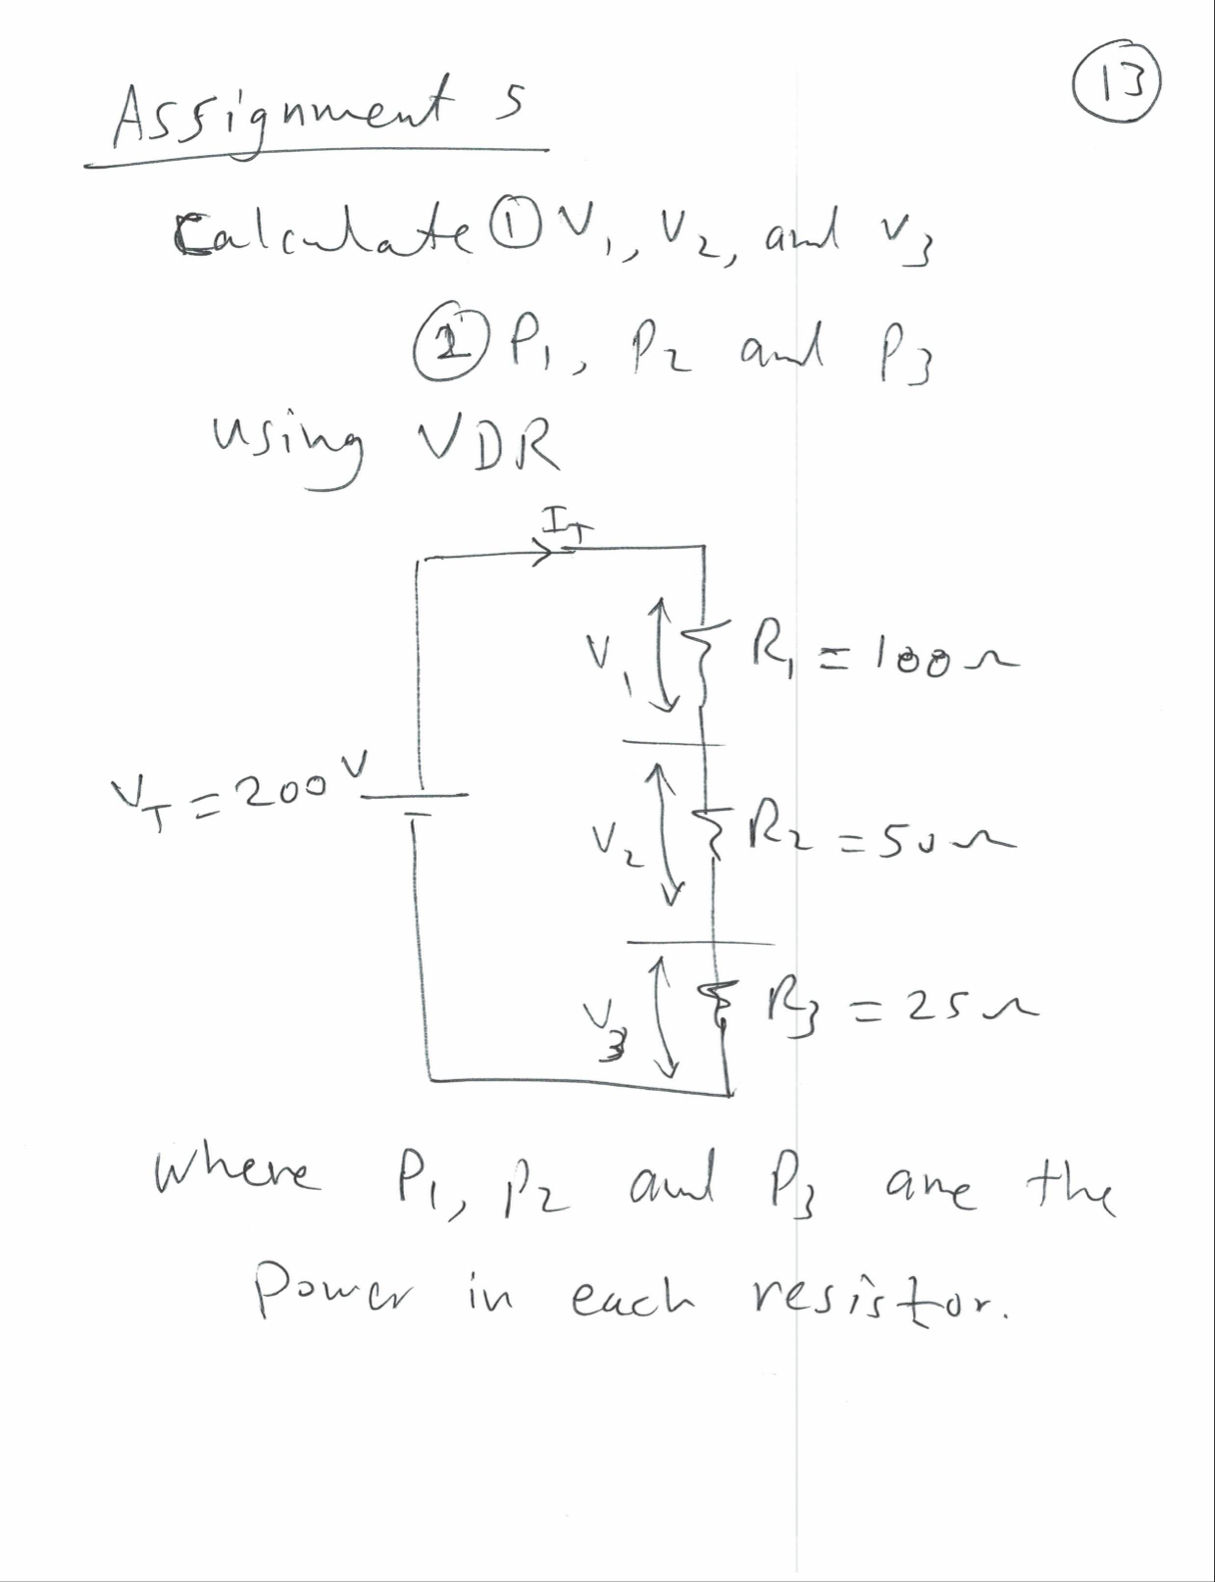 13
Assignment 5
Calculate ① V1, V2, and V3
② P1, P2 and P3
using VDR
IT
V1
R1 = 100Ω
VT = 200V
V2
R2 = 50Ω
V3
R3 = 25Ω
where P1, P2 and P3 are the
Power in each resistor.